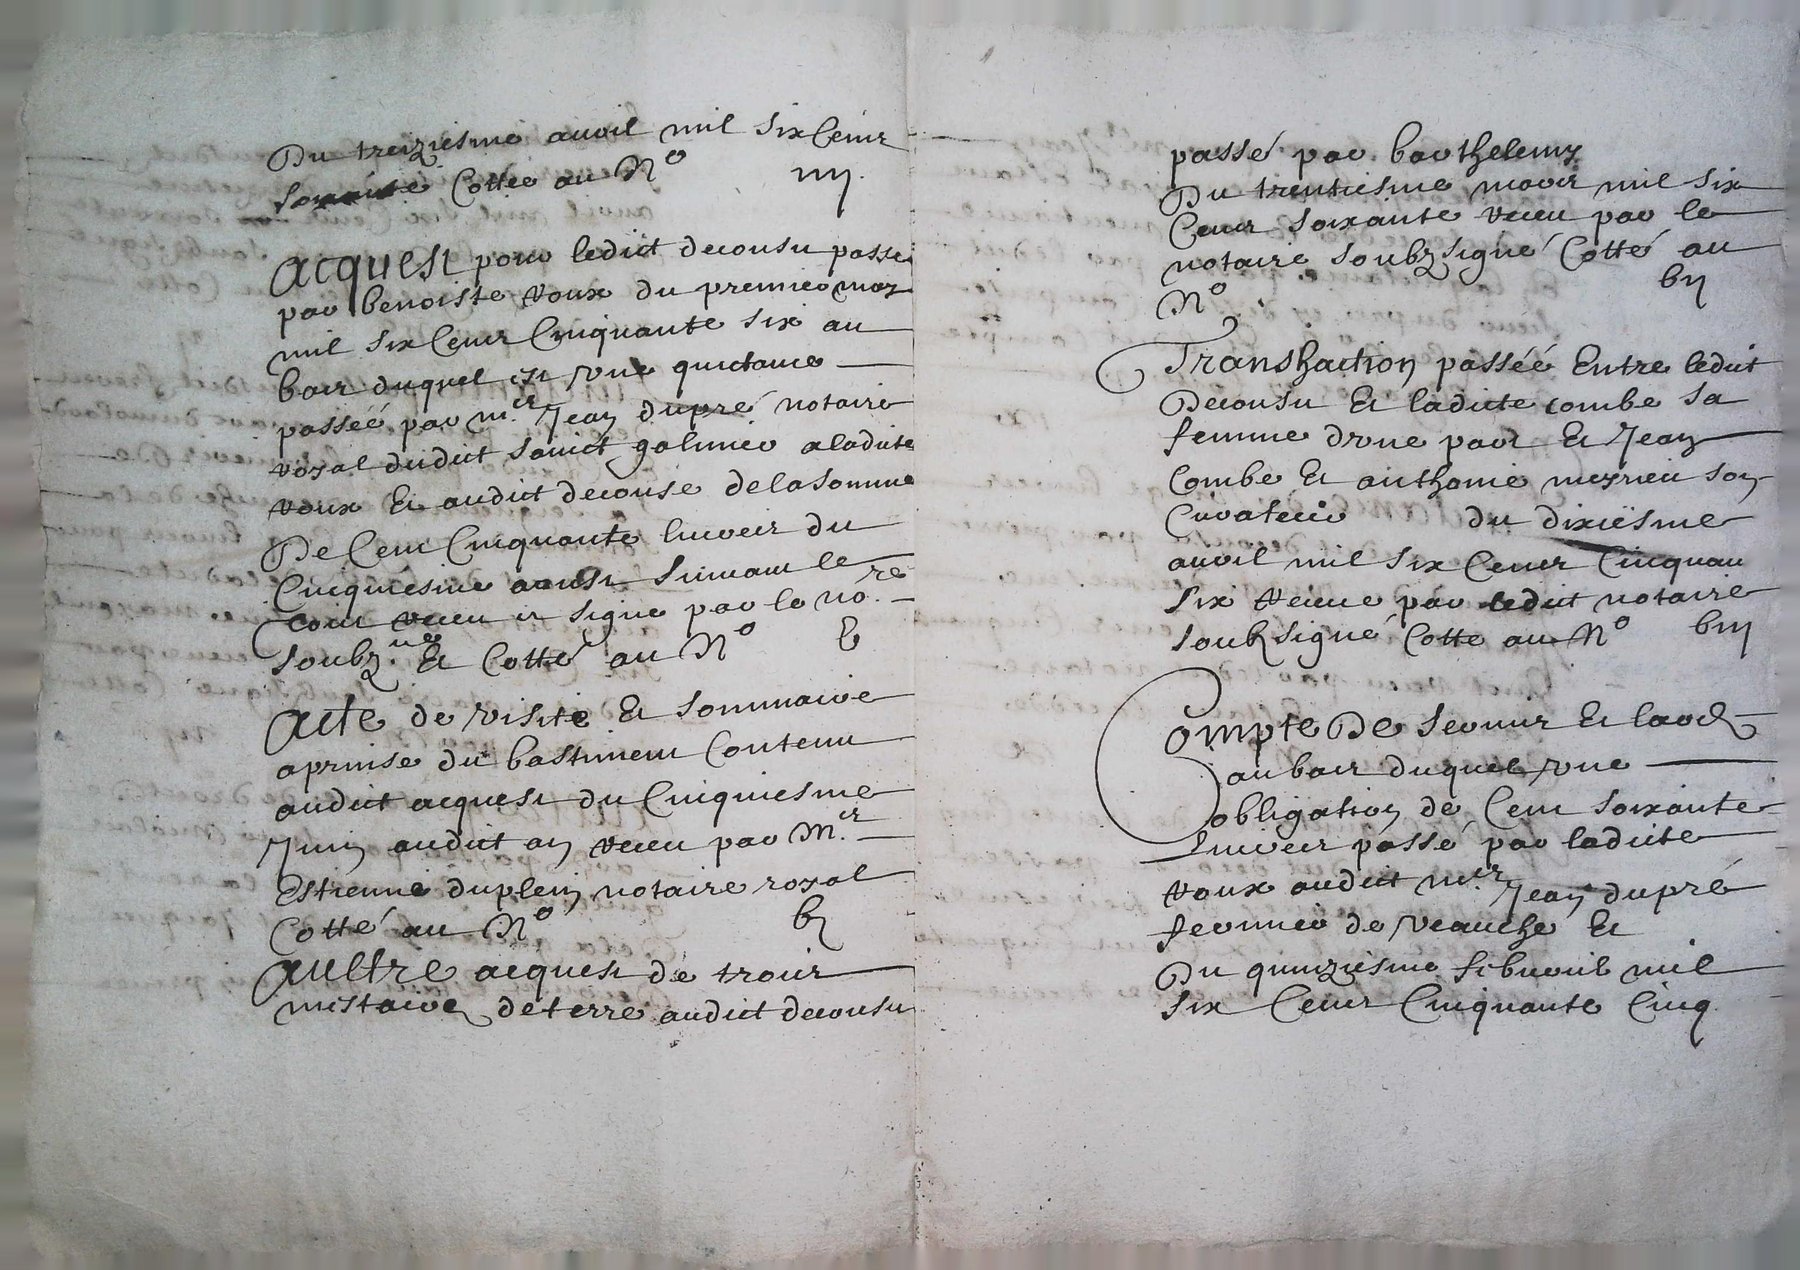 Du treiziesme avril mil six Cens
soixante Cottée au N° iiij.
Acquest pour ledict decousu passé
par benoiste voux du premier may
mil six Cens Cinquante six au
bas duquel est une quictance
passéé par m.er Jean dupré notaire
royal dudict sainct galmier a ladicte
voux Et audict decouse de la somme
De Cent Cinquante livres du
Cinquiesme aoust suivant le
tout receu et signé par le no.re
soubz.né Et Cotté au N° V
Acte de visite Et sommaire
aprinse du bastiment Contenu
audict acquest du Cinquiesme
Juin audict an receu par M.er
Estienne duplein notaire royal
Cotté au N° vj
Aultre acquest de trois
mestairez de terre audict decousu
passé par barthelemy
Du trentiesme mars mil six
Cens soixante receu par le
notaire soubzsigné Cotté au
N° vij
Transhaction passéé Entre ledict
Decousu Et ladicte combe sa
femme d'une part Et Jean
Combe Et anthoine meyrieu son
Curateur du dixiesme
avril mil six Cens Cinquan
six receue par ledict notaire
soubsigné Cotte au N° viij
Compte De servir Et laod
au bas duquel une
obligation de Cent soixante
livres passé par ladicte
voux audict m.er Jean dupré
fermier de veauche Et
Du quinziesme febvril mil
six Cens Cinquante Cinq